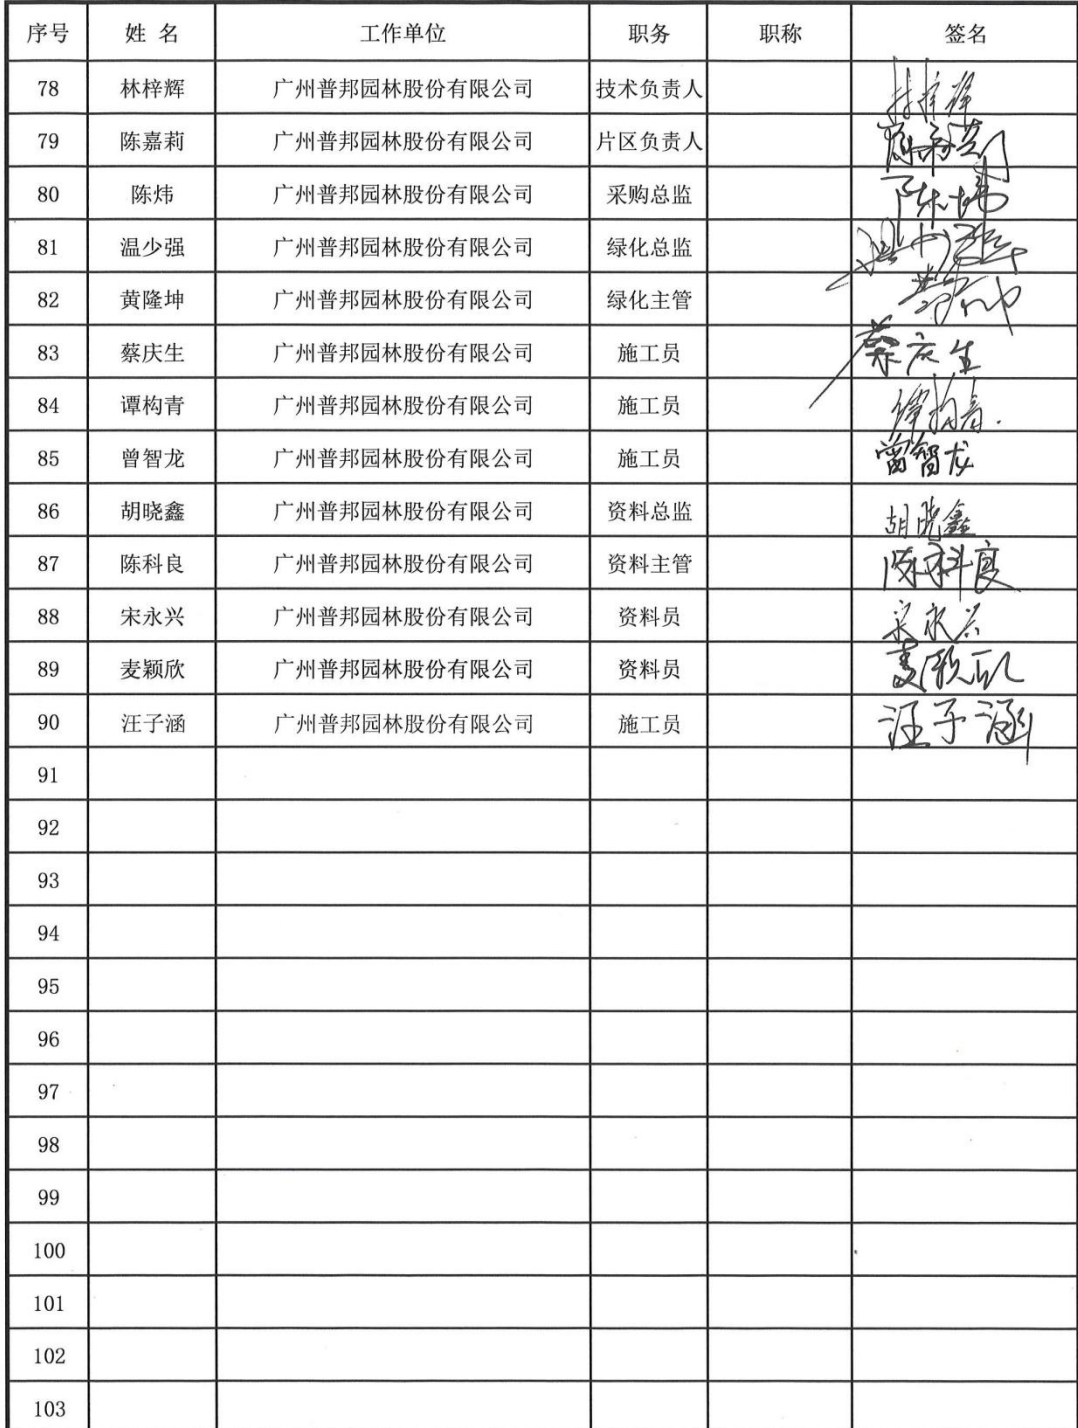 序号 姓 名 工作单位 职务 职称 签名
78 林梓辉 广州普邦园林股份有限公司 技术负责人 林梓辉
79 陈嘉莉 广州普邦园林股份有限公司 片区负责人 陈嘉莉
80 陈炜 广州普邦园林股份有限公司 采购总监 陈炜
81 温少强 广州普邦园林股份有限公司 绿化总监 温少强
82 黄隆坤 广州普邦园林股份有限公司 绿化主管
83 蔡庆生 广州普邦园林股份有限公司 施工员 蔡庆生
84 谭构青 广州普邦园林股份有限公司 施工员 谭构青
85 曾智龙 广州普邦园林股份有限公司 施工员 曾智龙
86 胡晓鑫 广州普邦园林股份有限公司 资料总监 胡晓鑫
87 陈科良 广州普邦园林股份有限公司 资料主管 陈科良
88 宋永兴 广州普邦园林股份有限公司 资料员 宋永兴
89 麦颖欣 广州普邦园林股份有限公司 资料员 麦颖欣
90 汪子涵 广州普邦园林股份有限公司 施工员 汪子涵
91
92
93
94
95
96
97
98
99
100
101
102
103